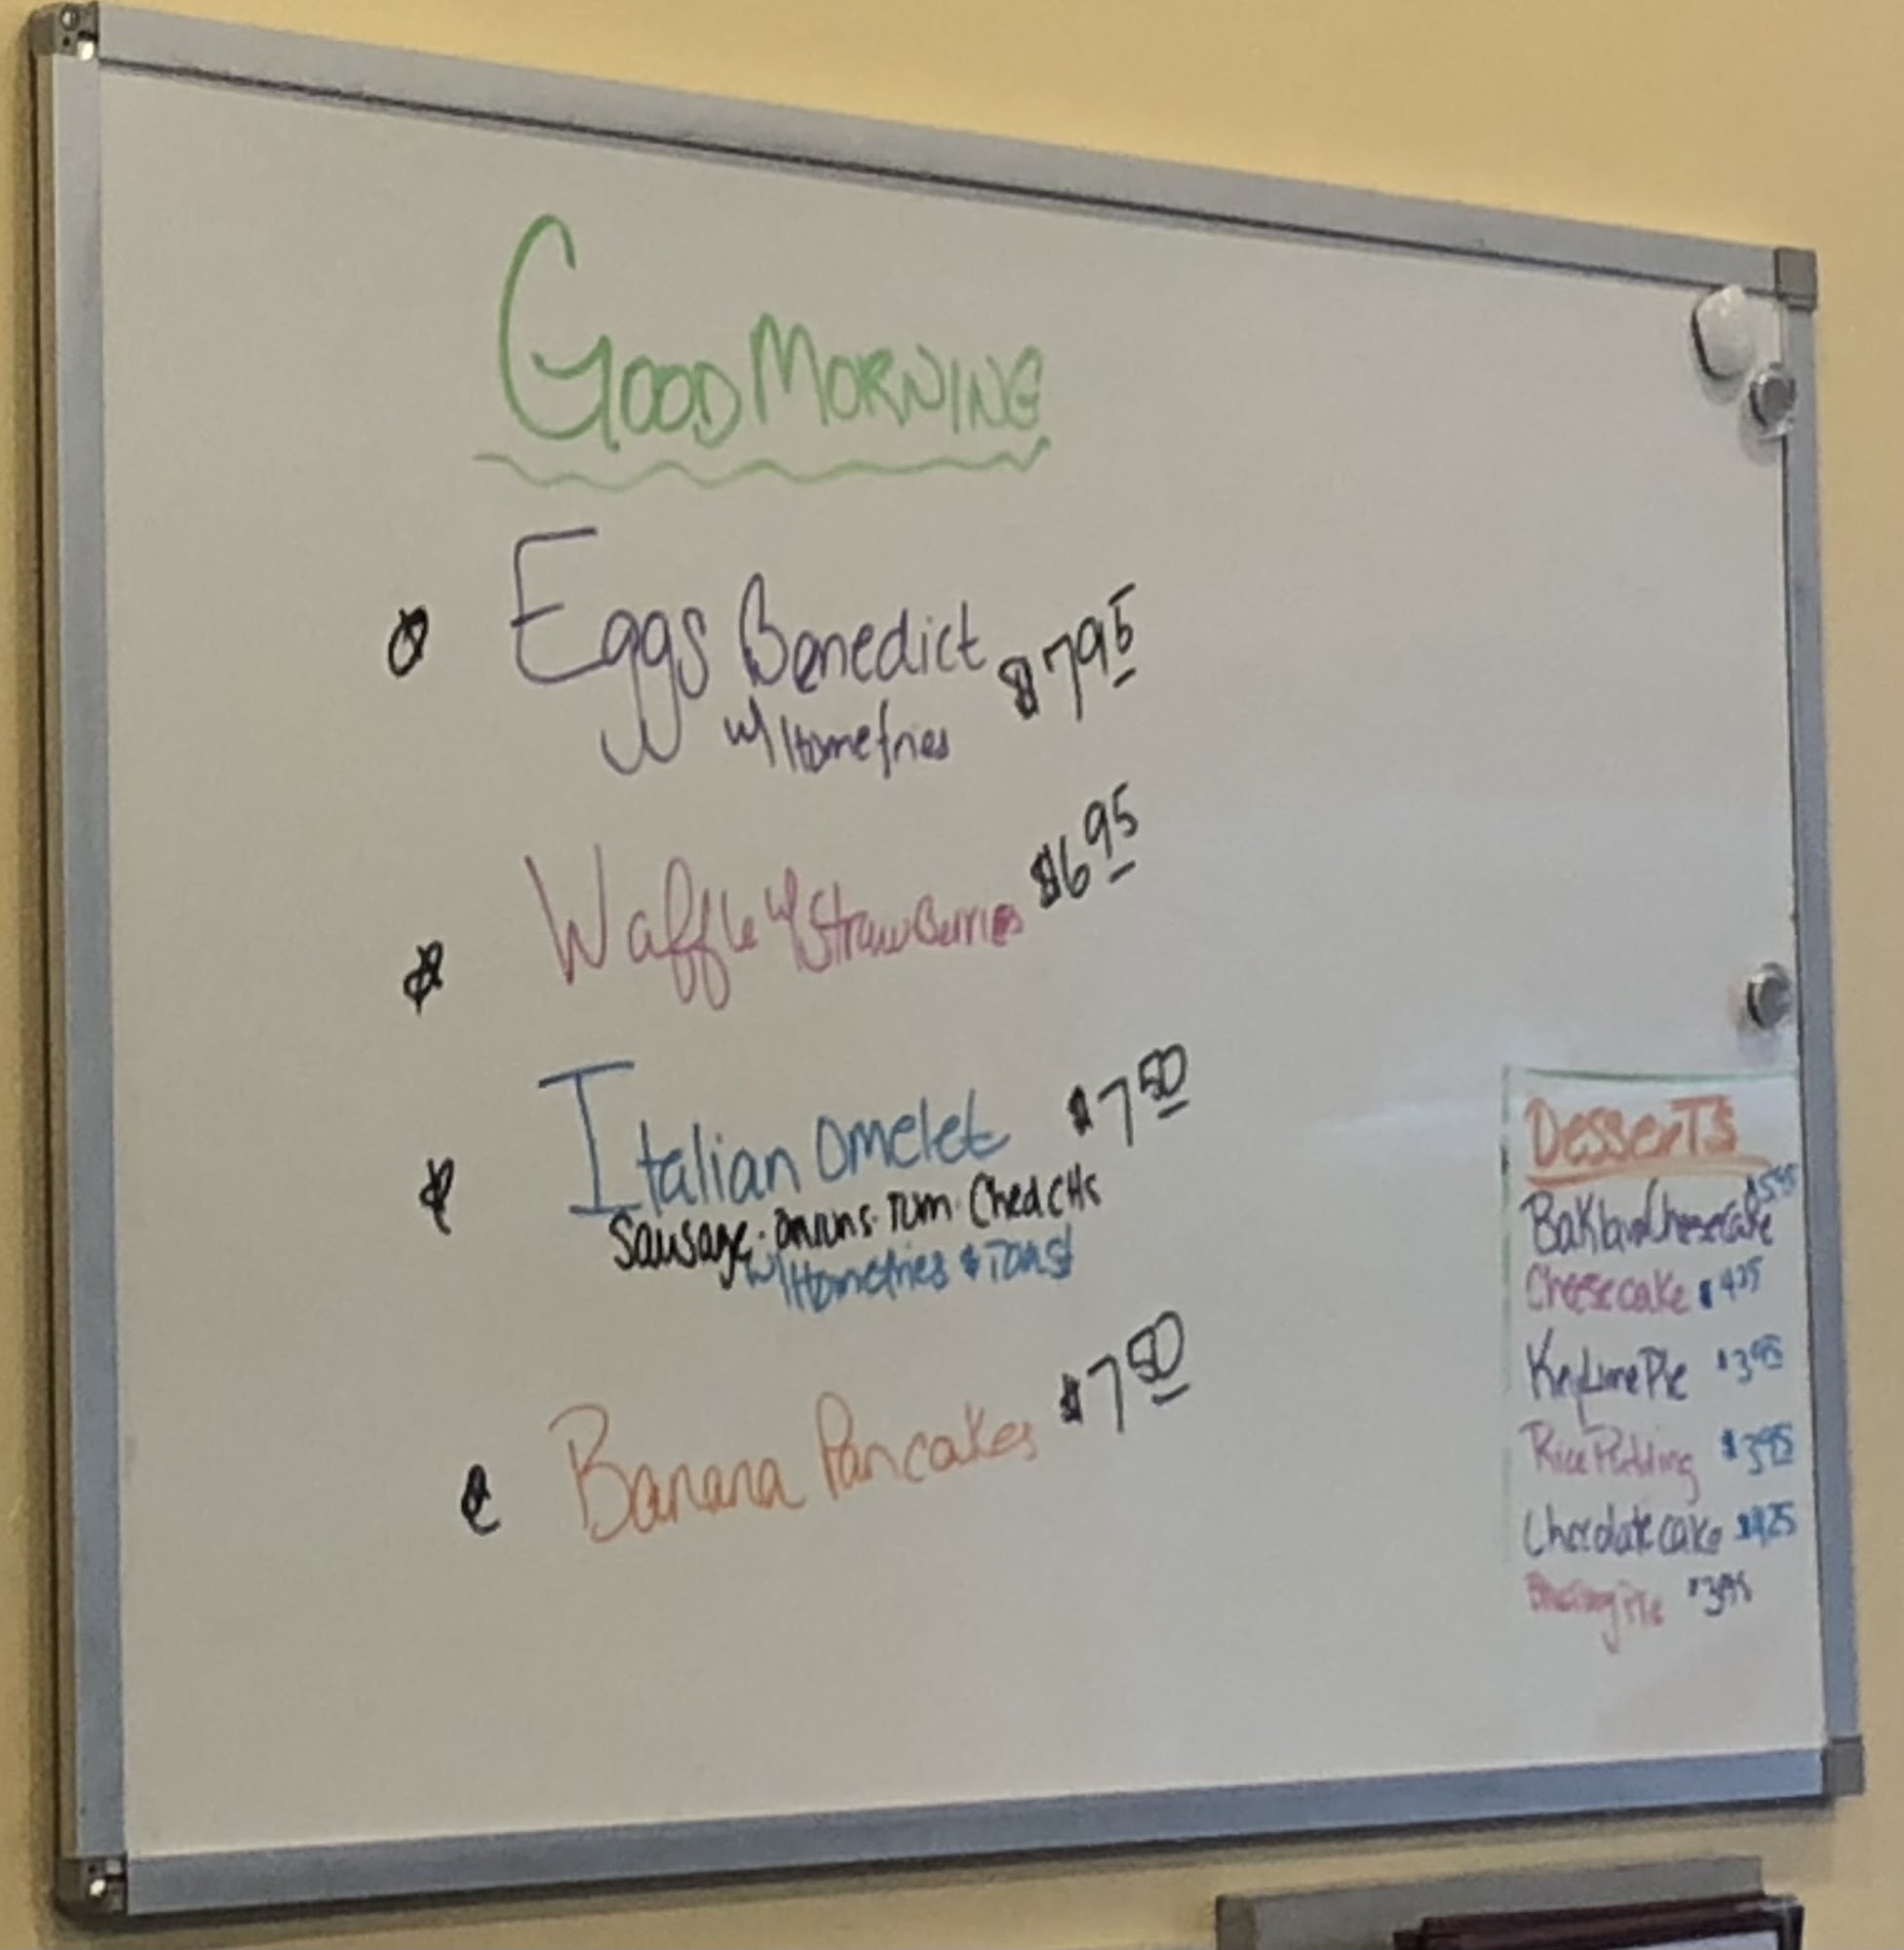 GOOD MORNING
Eggs Benedict $7.95
w/ Homefries
Waffle w/ StrawBerries $6.95
Italian Omelet $7.50
Sausage. onions. Tom. Ched CHs
w/ Homefries & Toast
Banana Pancakes $7.50
DesserTs
$5.95
Baklava Cheesecake
Cheesecake $4.25
Key Lime Pie $3.95
Rice Pudding $3.95
Chocolate cake $4.25
Pie $3.95